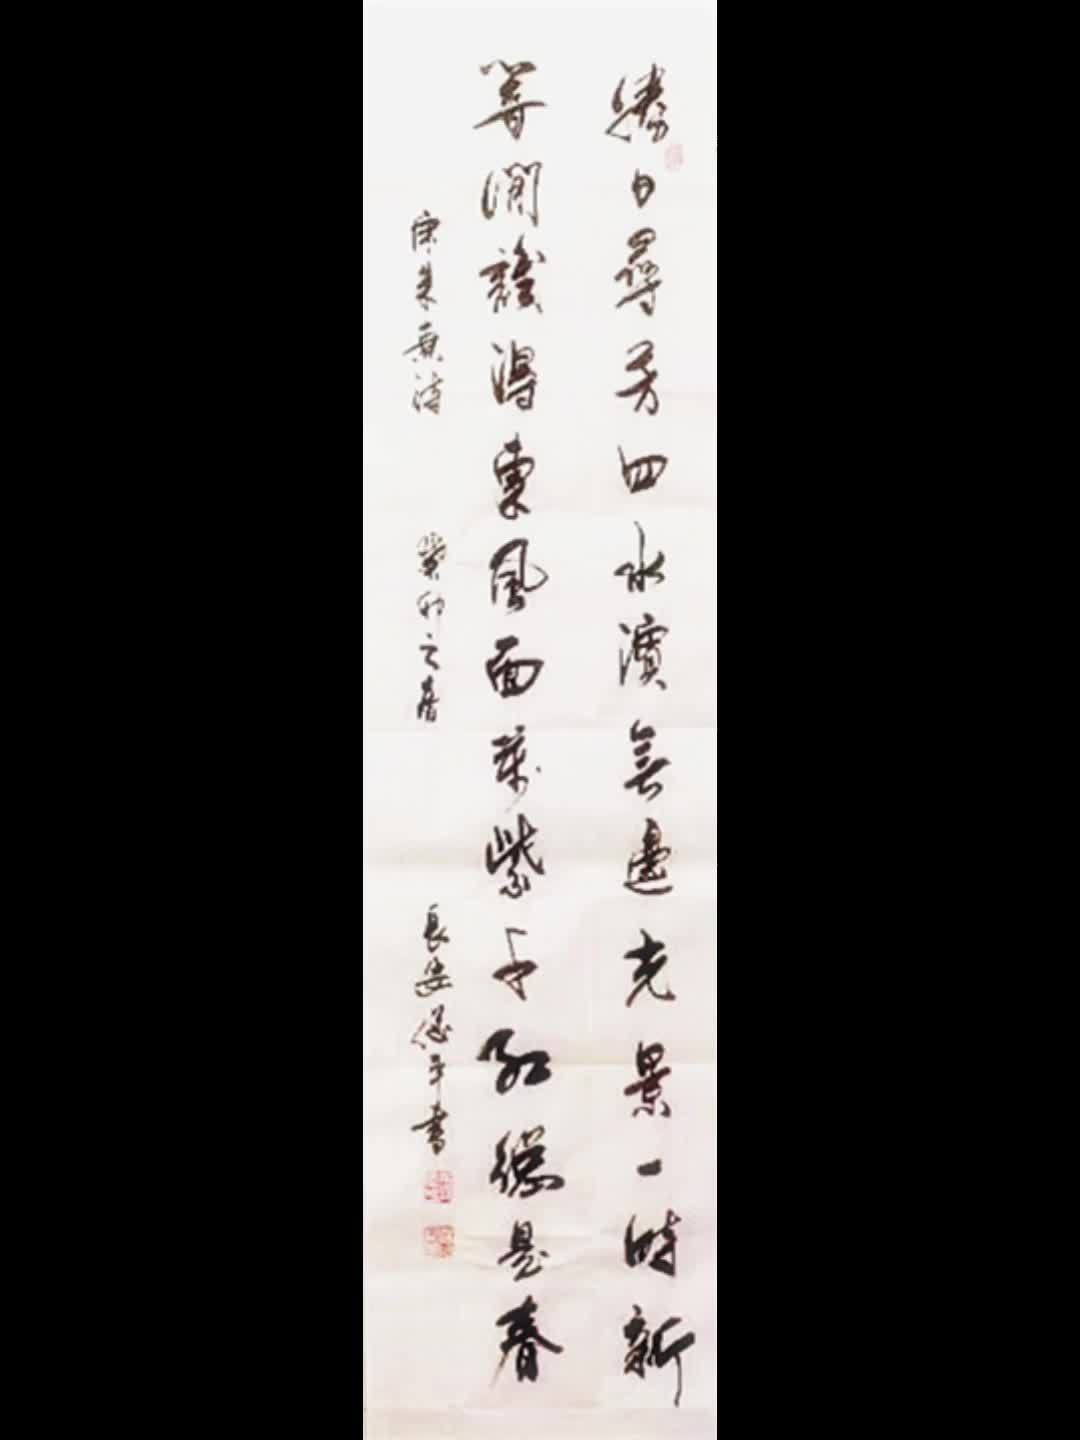 勝日尋芳四水濱無邊光景一時新
等澗識得東風面萬紫千紅總是春
宋朱熹詩 癸卯之春 長安 平書